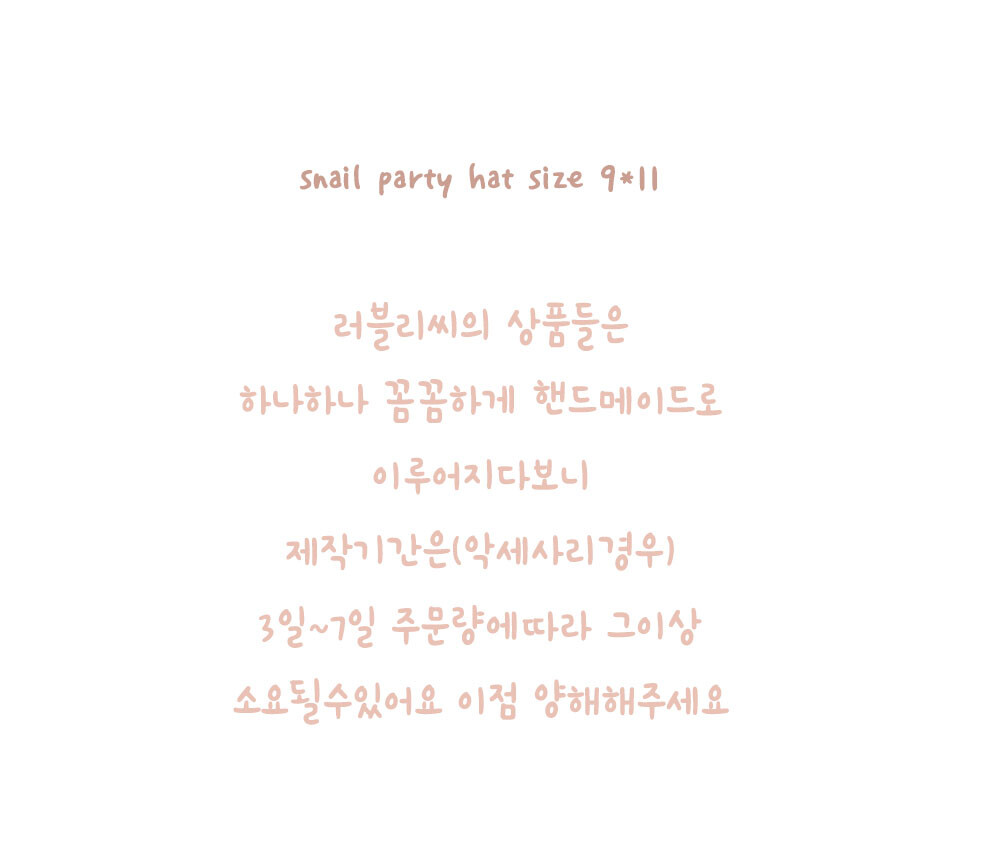 snail party hat size 9*11
러블리씨의 상품들은
하나하나 꼼꼼하게 핸드메이드로
이루어지다보니
제작기간은(악세사리경우)
3일~7일 주문량에따라 그이상
소요될수있어요 이점 양해해주세요